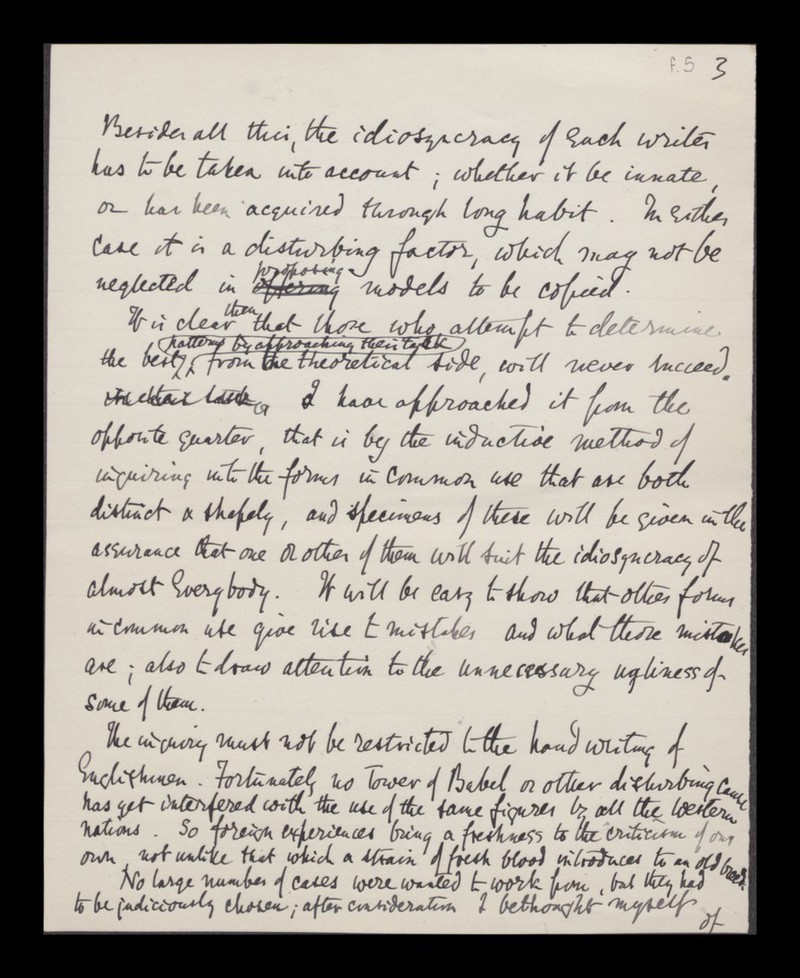 f.5 3
Besides all this, the idiosyncracy of each writer
has to be taken into account ; whether it be innate,
or has been acquired through long habit . In either
case it is a disturbing factor, which may not be
proposing
neglected in offering models to be copied .
then
It is clear that those who attempt to determine
patterns by approaching their task
the best from the theoretical side, will never succeed.
in their task I have approached it from the
opposite quarter, that is by the inductive method of
inquiring into the forms in common use that are both
distinct & shapely, and specimens of these will be given in the
assurance that one or other of them will suit the idiosyncracy of
almost Everybody. It will be easy to show that other forms
in common use give rise to mistakes and what those mistakes
are ; also to draw attention to the unnecessary ugliness of
some of them.
The inquiry must not be restricted to the hand writing of
Englishmen . Fortunately no Tower of Babel or other disturbing cause
has yet interfered with the use of the same figures by all the Western
nations . So foreign experiences bring a freshness to the criticism of our
own, not unlike that which a strain of fresh blood introduces to an old breed.
No large number of cases were wanted to work from, but they had
to be judiciously chosen ; after consideration I bethought myself
of